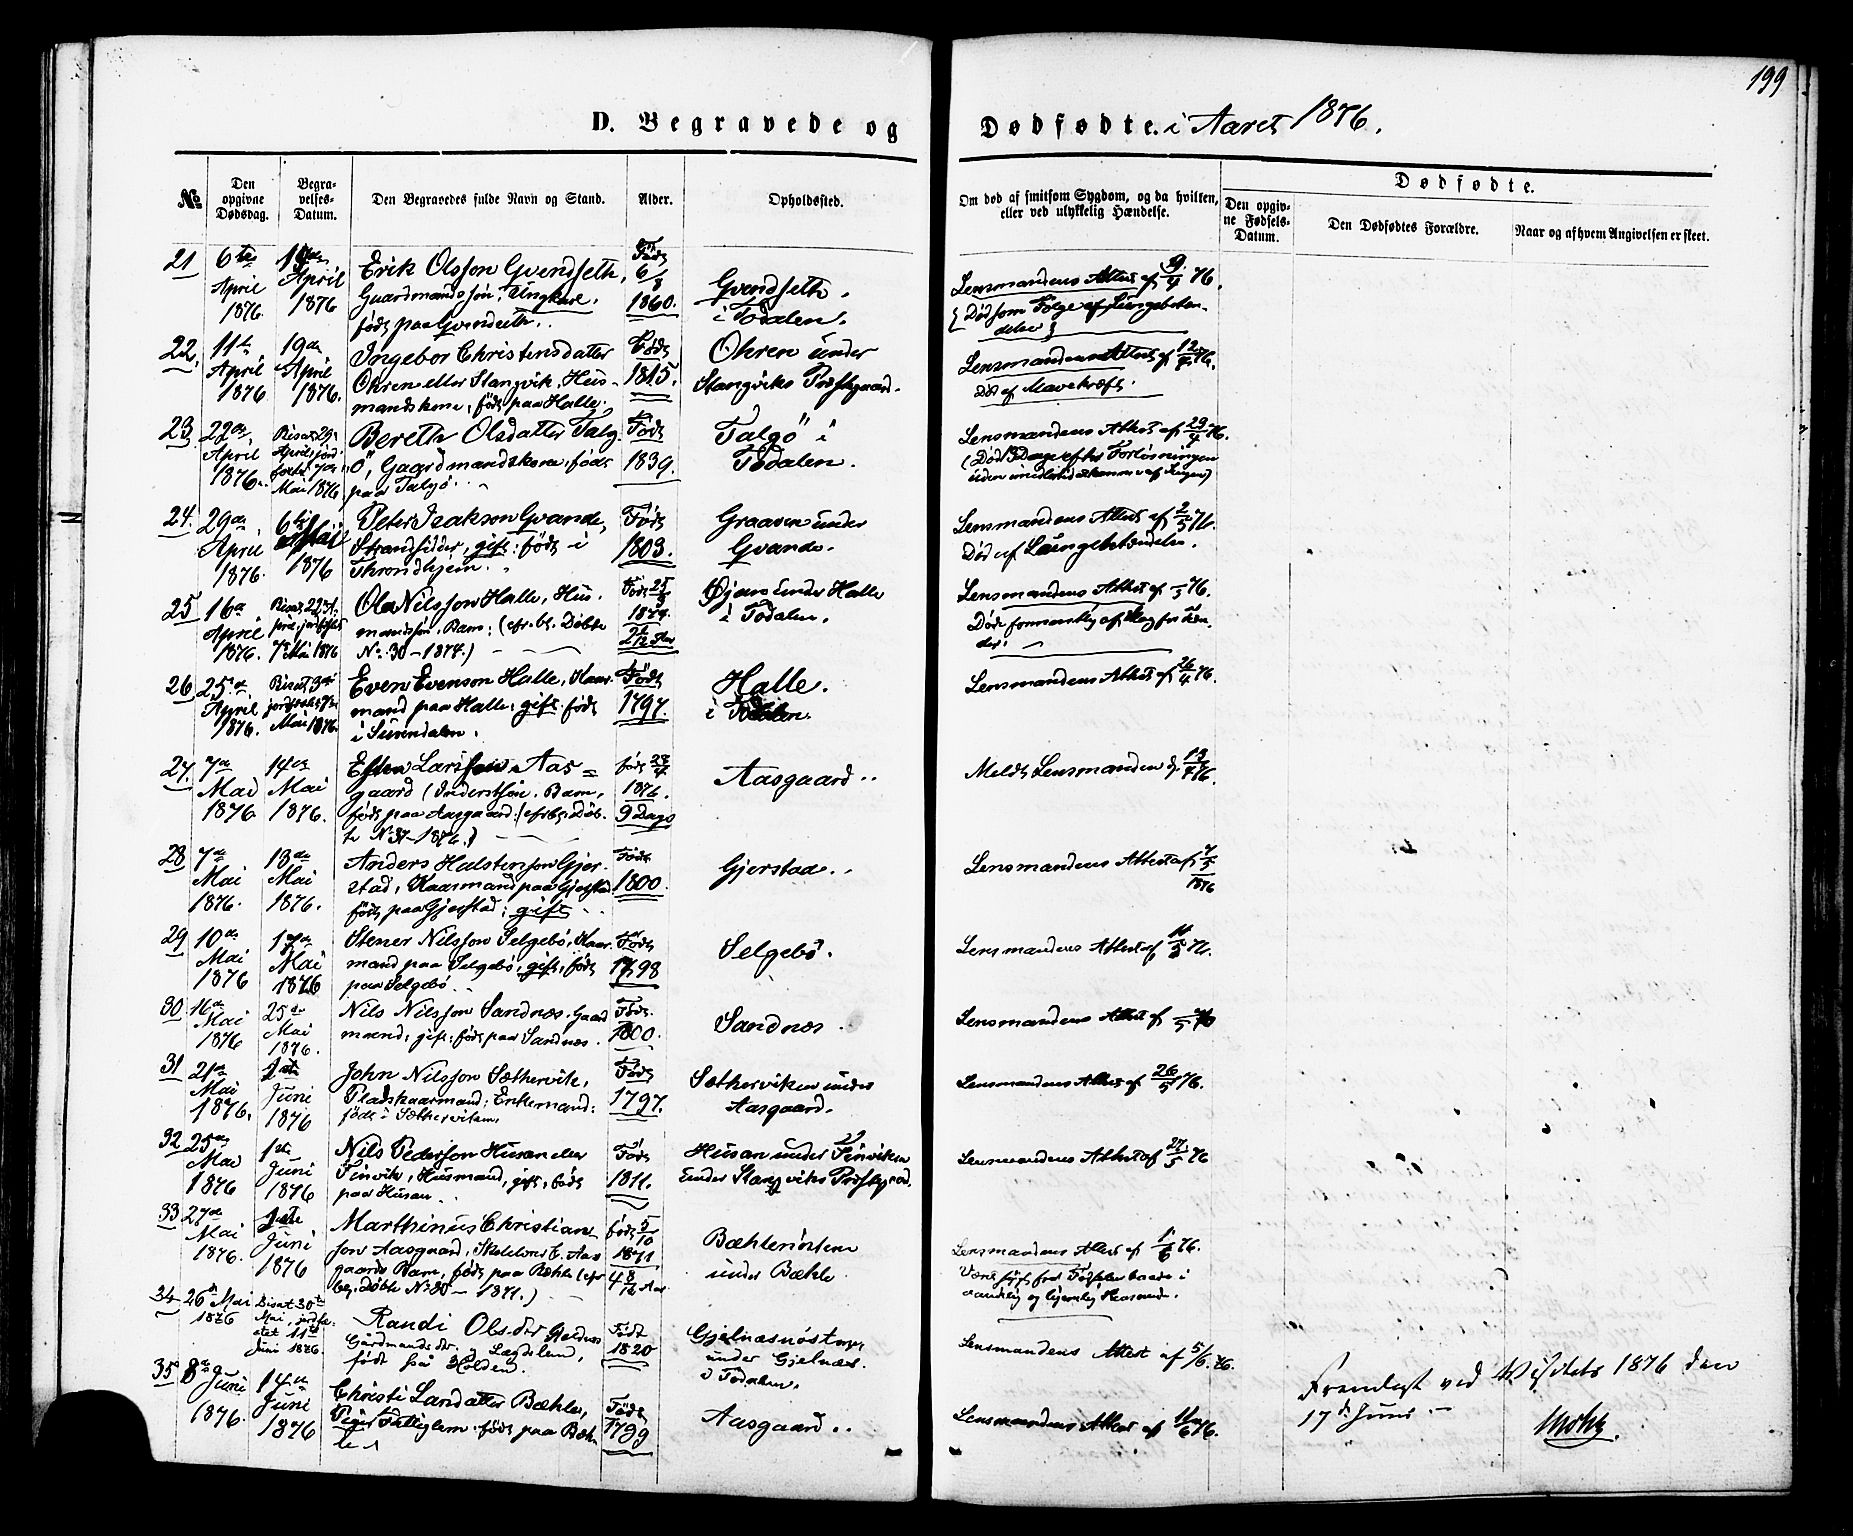 199
D. Begravede og Dødfødte. i Aaret 1876.
No
Den opgivne Dødsdag.
Begravelses-Datum.
Den Begravedes fulde Navn og Stand.
Alder.
Opholdssted.
Om død af smitsom Sygdom, og da hvilken, eller ved ulykkelig Hændelse.
Dødfødte.
Den opgivne Fødsels-Datum.
Den Dødfødtes Forældre.
Naar og af hvem Angivelsen er skeet.
21 6te April 1876 April 1876 Erik Olsson Gvendseth,
Gaardmandssøn, Ungkarl.
født paa Gvendseth.
Født 6/8 1860.
Gvendseth i Todalen.
Lensmandens Attest af 9/4 76.
(Død som Følge af Lungebetændelse)
22, 11te April 1876 19de April 1876. Ingebor Christensdatter
Øhren eller Stangvik, Hus-
mandskone, født paa Halle.
Født 1815.
Øhren under
Stangviks Præstgaard.
Lensmandens Attest af 12/4 76.
Død af Mavekræft.
23 22de April 1876. Bisat 29
April, jordfæstet 7de
Mai 1876
Bereth Olsdatter Talg-
ö, Gaardmandskone, født
paa Talgö.
Født 1839.
Talgö i
Todalen.
Lensmandens Attest af 29/4 76.
24. 29de April 1876. 6te Mai 1876
Peter Isakson Gvande,
Strandsidder, gift: født i
Throndhjem.
Født 1803.
Graaven under
Gvande.
Lensmandens Attest af 2/5 76.
Død af Lungebetændelse.
25 16de April 1876. Bisat 22
7de Mai 1876
Ola Nilsson Halle, Hus-
mandssøn, Barn: (cfr. bl. Døbte
No 30 - 1874.)
Øjan under Halle
i Todalen.
Lensmandens Attest af
26 25de April 1876.
Mai 1876.
Even Evenson Halle, Kaar-
mand paa Halle: gift: født
i Surendalen.
Født 1797.
Halle.
i Todalen.
Lensmandens Attest af 26/4 76.
27. 7de Mai 1876 14de Mai 1876.
Esten Larsson Aas-
gaard (Inderstsøn. Barn,
født paa Aasgaard:
No 37 - 1876.)
9 Dage
Aasgaard.
Meldt Lensmanden
28 7de Mai 1876. 13de Mai 1876.
Anders Halstenson Gjer-
stad, Kaarmand paa Gjerstad
født paa Gjerstad: gift
Født 1800.
Gjerstad.
Lensmandens Attest af
1876
29 10de Mai 1876 17de Mai 1876
Stener Nilsson Selgebö, Kaar-
mand paa Selgebö, gift, født
paa Selgebö.
Født 1798
Selgebö.
Lensmandens Attest af 11/5 76.
30. 16de Mai 1876 25de Mai 1876.
Nils Nilsson Sandnæs. Gaard
mand; gift: født paa Sandnæs.
Født. 1800.
Sandnæs.
Lensmandens Attest af
31 21de Mai 1876. Juni 1876
John Nilsson Sæthervik,
Pladskaarmand; Enkemand:
født i Sætherviken.
Født 1797.
Sætherviken under
Aasgaard.
Lensmandens Attest af 26/5 76.
32 25de Mai 1876 1ste Juni 1876
Nils Pederson Husan eller
Finvik, Husmand, gift, født
paa Husan.
Født 1811.
Husan under Finviken
under Stangviks Præstgaard.
Lensmandens Attest af 27/5 76
33 27de Mai 1876. Juni 1876
Marthinus Christian-
son Aasgaard,
gaards Barn, født paa Bæhle (cfr
1871.)
født 5/10 1871
4 8/12 Aar
Bæhlenøsten
under Bæhle
Lensmandens Attest af 1/6 76.
34 26de Mai 1876 Bisat 30te
Mai, jordfæstet 11te
Juni 1876.
Randi Olsdtr
Gårdmandsdtr. Lægdslem,
født på Halden.
Født 1820
Gjelnæsnøsten
under Gjelnæs.
i Todalen.
Lensmandens Attest af 5/6. 76.
35 8de Juni 1876. 14de Juni 1876
Christi Larsdatter Bæhle,
Fattiglem. født paa Bæh-
le.
Født 1799
Aasgaard.
Lensmandens Attest af
Fremlagt ved Visitats 1876 den
17de Juni